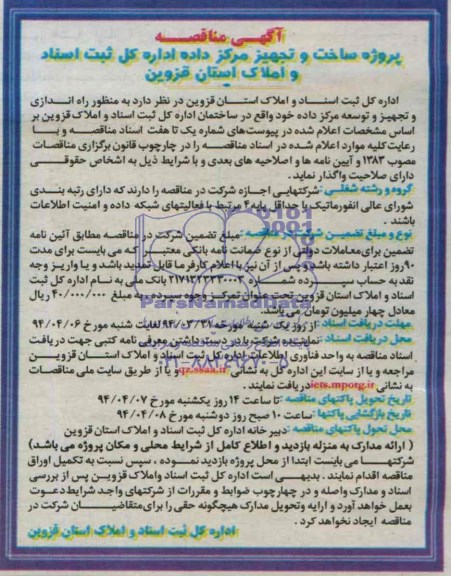 آگهی مناقصه
پروژه ساخت و تجهیز مرکز داده اداره کل ثبت اسناد
و املاک استان قزوین
اداره کل ثبت اسناد و املاک استان قزوین در نظر دارد به منظور راه اندازی
و تجهیز و توسعه مرکز داده خود واقع در ساختمان اداره کل ثبت اسناد و املاک قزوین بر
اساس مشخصات اعلام شده در پیوست‌های شماره یک تا هفت اسناد مناقصه و با
رعایت کلیه موارد اعلام شده در اسناد مناقصه را در چارچوب قانون برگزاری مناقصات
مصوب ۱۳۸۳ و آیین نامه ها و اصلاحیه های بعدی و با شرایط ذیل به اشخاص حقوقی
دارای صلاحیت واگذار نماید.
گروه و رشته شغلی: شرکتهایی اجازه شرکت در مناقصه را دارند که دارای رتبه بندی
شورای عالی انفورماتیک با حداقل پایه ۴ مرتبط با فعالیتهای شبکه داده و امنیت اطلاعات
باشند.
نوع و مبلغ تضمین شرکت در مناقصه: مبلغ تضمین شرکت در مناقصه مطابق آئین نامه
تضمین برای معاملات دولتی از نوع ضمانت نامه بانکی معتبر که می بایست برای مدت
۹۰ روز اعتبار داشته باشد و پس از آن نیز با اعلام کارفرما قابل تمدید باشد و یا واریز وجه
نقد به حساب سپرده شماره بانک ملی به نام اداره کل ثبت
اسناد و املاک استان قزوین تحت عنوان تمرکز وجوه سپرده به مبلغ ۴۰/۰۰۰/۰۰۰ ریال
معادل چهار میلیون تومان می باشد.
مهلت دریافت اسناد: از روز یک شنبه مورخه ۹۴/۰۳/۳۱ لغایت شنبه مورخ ۹۴/۰۴/۰۶
محل دریافت اسناد: نماینده شرکت با در دست داشتن معرفی نامه کتبی جهت دریافت
اسناد مناقصه به واحد فناوری اطلاعات اداره کل ثبت اسناد و املاک استان قزوین
مراجعه و یا از سایت این اداره کل به نشانی qz.ssaa.ir و یا از طریق سایت ملی مناقصات
به نشانی iets.mporg.ir دریافت نمایند.
تاریخ تحویل پاکتهای مناقصه: تا ساعت ۱۴ روز یکشنبه مورخ ۹۴/۰۴/۰۷
تاریخ بازگشایی پاکتها: ساعت ۱۰ صبح روز دوشنبه مورخ ۹۴/۰۴/۰۸
محل تحول پاکتهای مناقصه: دبیر خانه اداره کل ثبت اسناد و املاک استان قزوین
( ارائه مدارک به منزله بازدید و اطلاع کامل از شرایط محلی و مکان پروژه می باشد)
شرکتها می بایست ابتدا از محل پروژه بازدید نموده ، سپس نسبت به تکمیل اوراق
مناقصه اقدام نمایند . بدیهی است اداره کل ثبت اسناد واملاک قزوین پس از بررسی
اسناد و مدارک واصله و در چهارچوب ضوابط و مقررات از شرکتهای واجد شرایط دعوت
بعمل خواهد آورد و ارایه وتحویل مدارک هیچگونه حقی را برای متقاضیان شرکت در
مناقصه ایجاد نخواهد کرد .
اداره کل ثبت اسناد و املاک استان قزوین
ParsNamadData